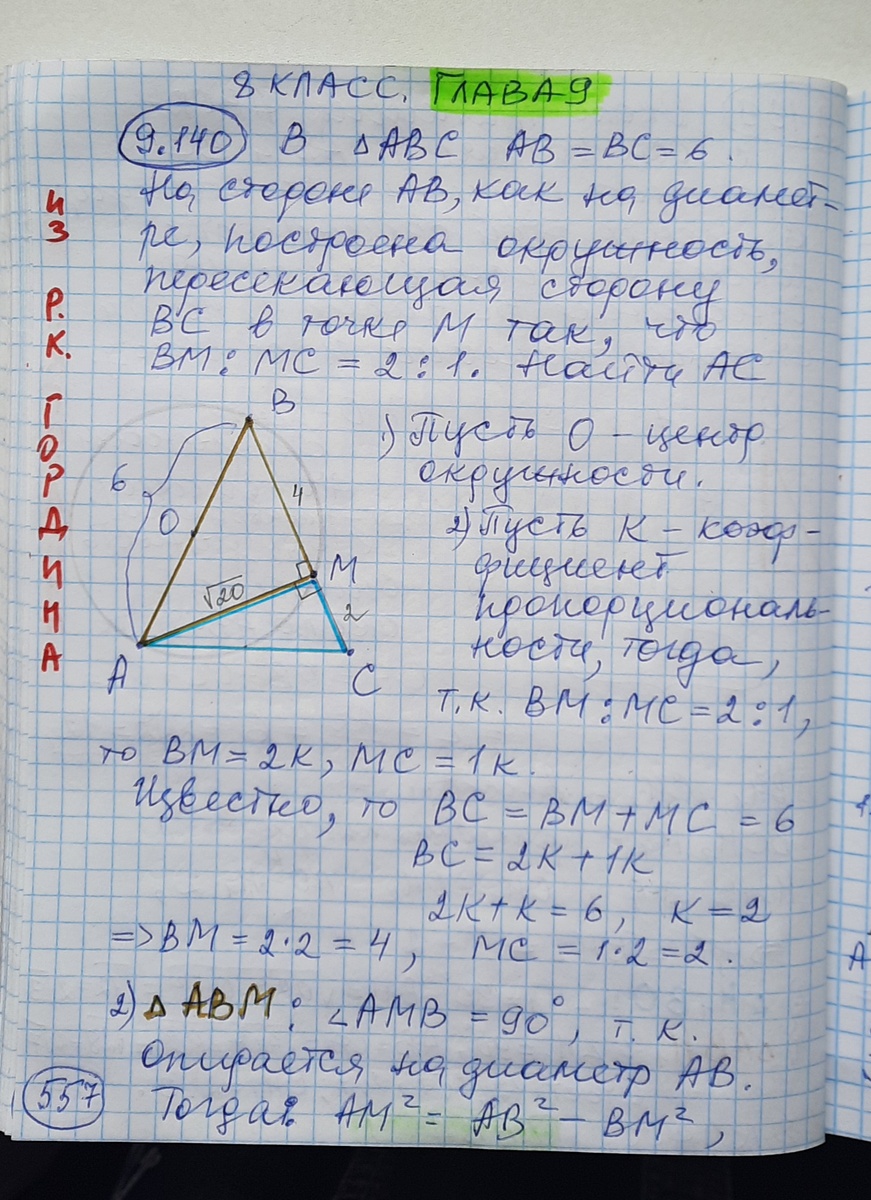 8 КЛАСС. ГЛАВА 9
9.140 В △ABC AB = BC = 6.
На стороне AB, как на диамет-
ре, построена окружность,
пересекающая сторону
BC в точке M так, что
BM : MC = 2 : 1. Найти AC
ИЗ Р.К. ГОРДИНА
B
6
4
O
M
√20
2
A
C
1) Пусть O – центр
окружности.
2) Пусть K – коэф-
фициент
пропорциональ-
ности, тогда,
т.к. BM : MC = 2 : 1,
то BM = 2K, MC = 1K.
Известно, то BC = BM + MC = 6
BC = 2K + 1K
2K + K = 6, K = 2
=> BM = 2·2 = 4, MC = 1·2 = 2.
2) △ABM: ∠AMB = 90°, т.к.
опирается на диаметр AB.
557 Тогда: AM² = AB² – BM²,